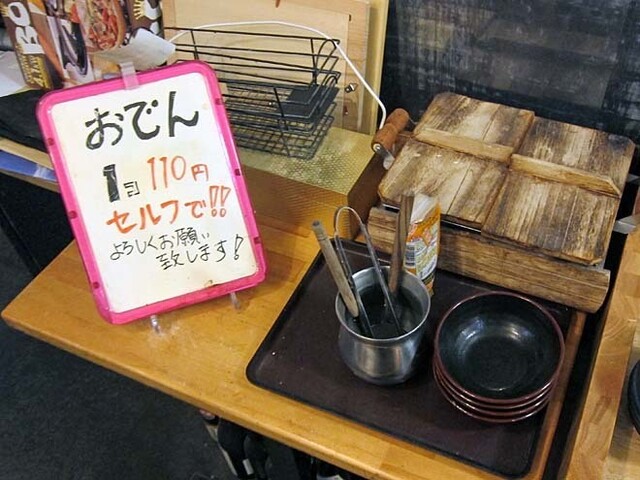 おでん
1コ 110円
セルフで!!
よろしくお願い
致します!